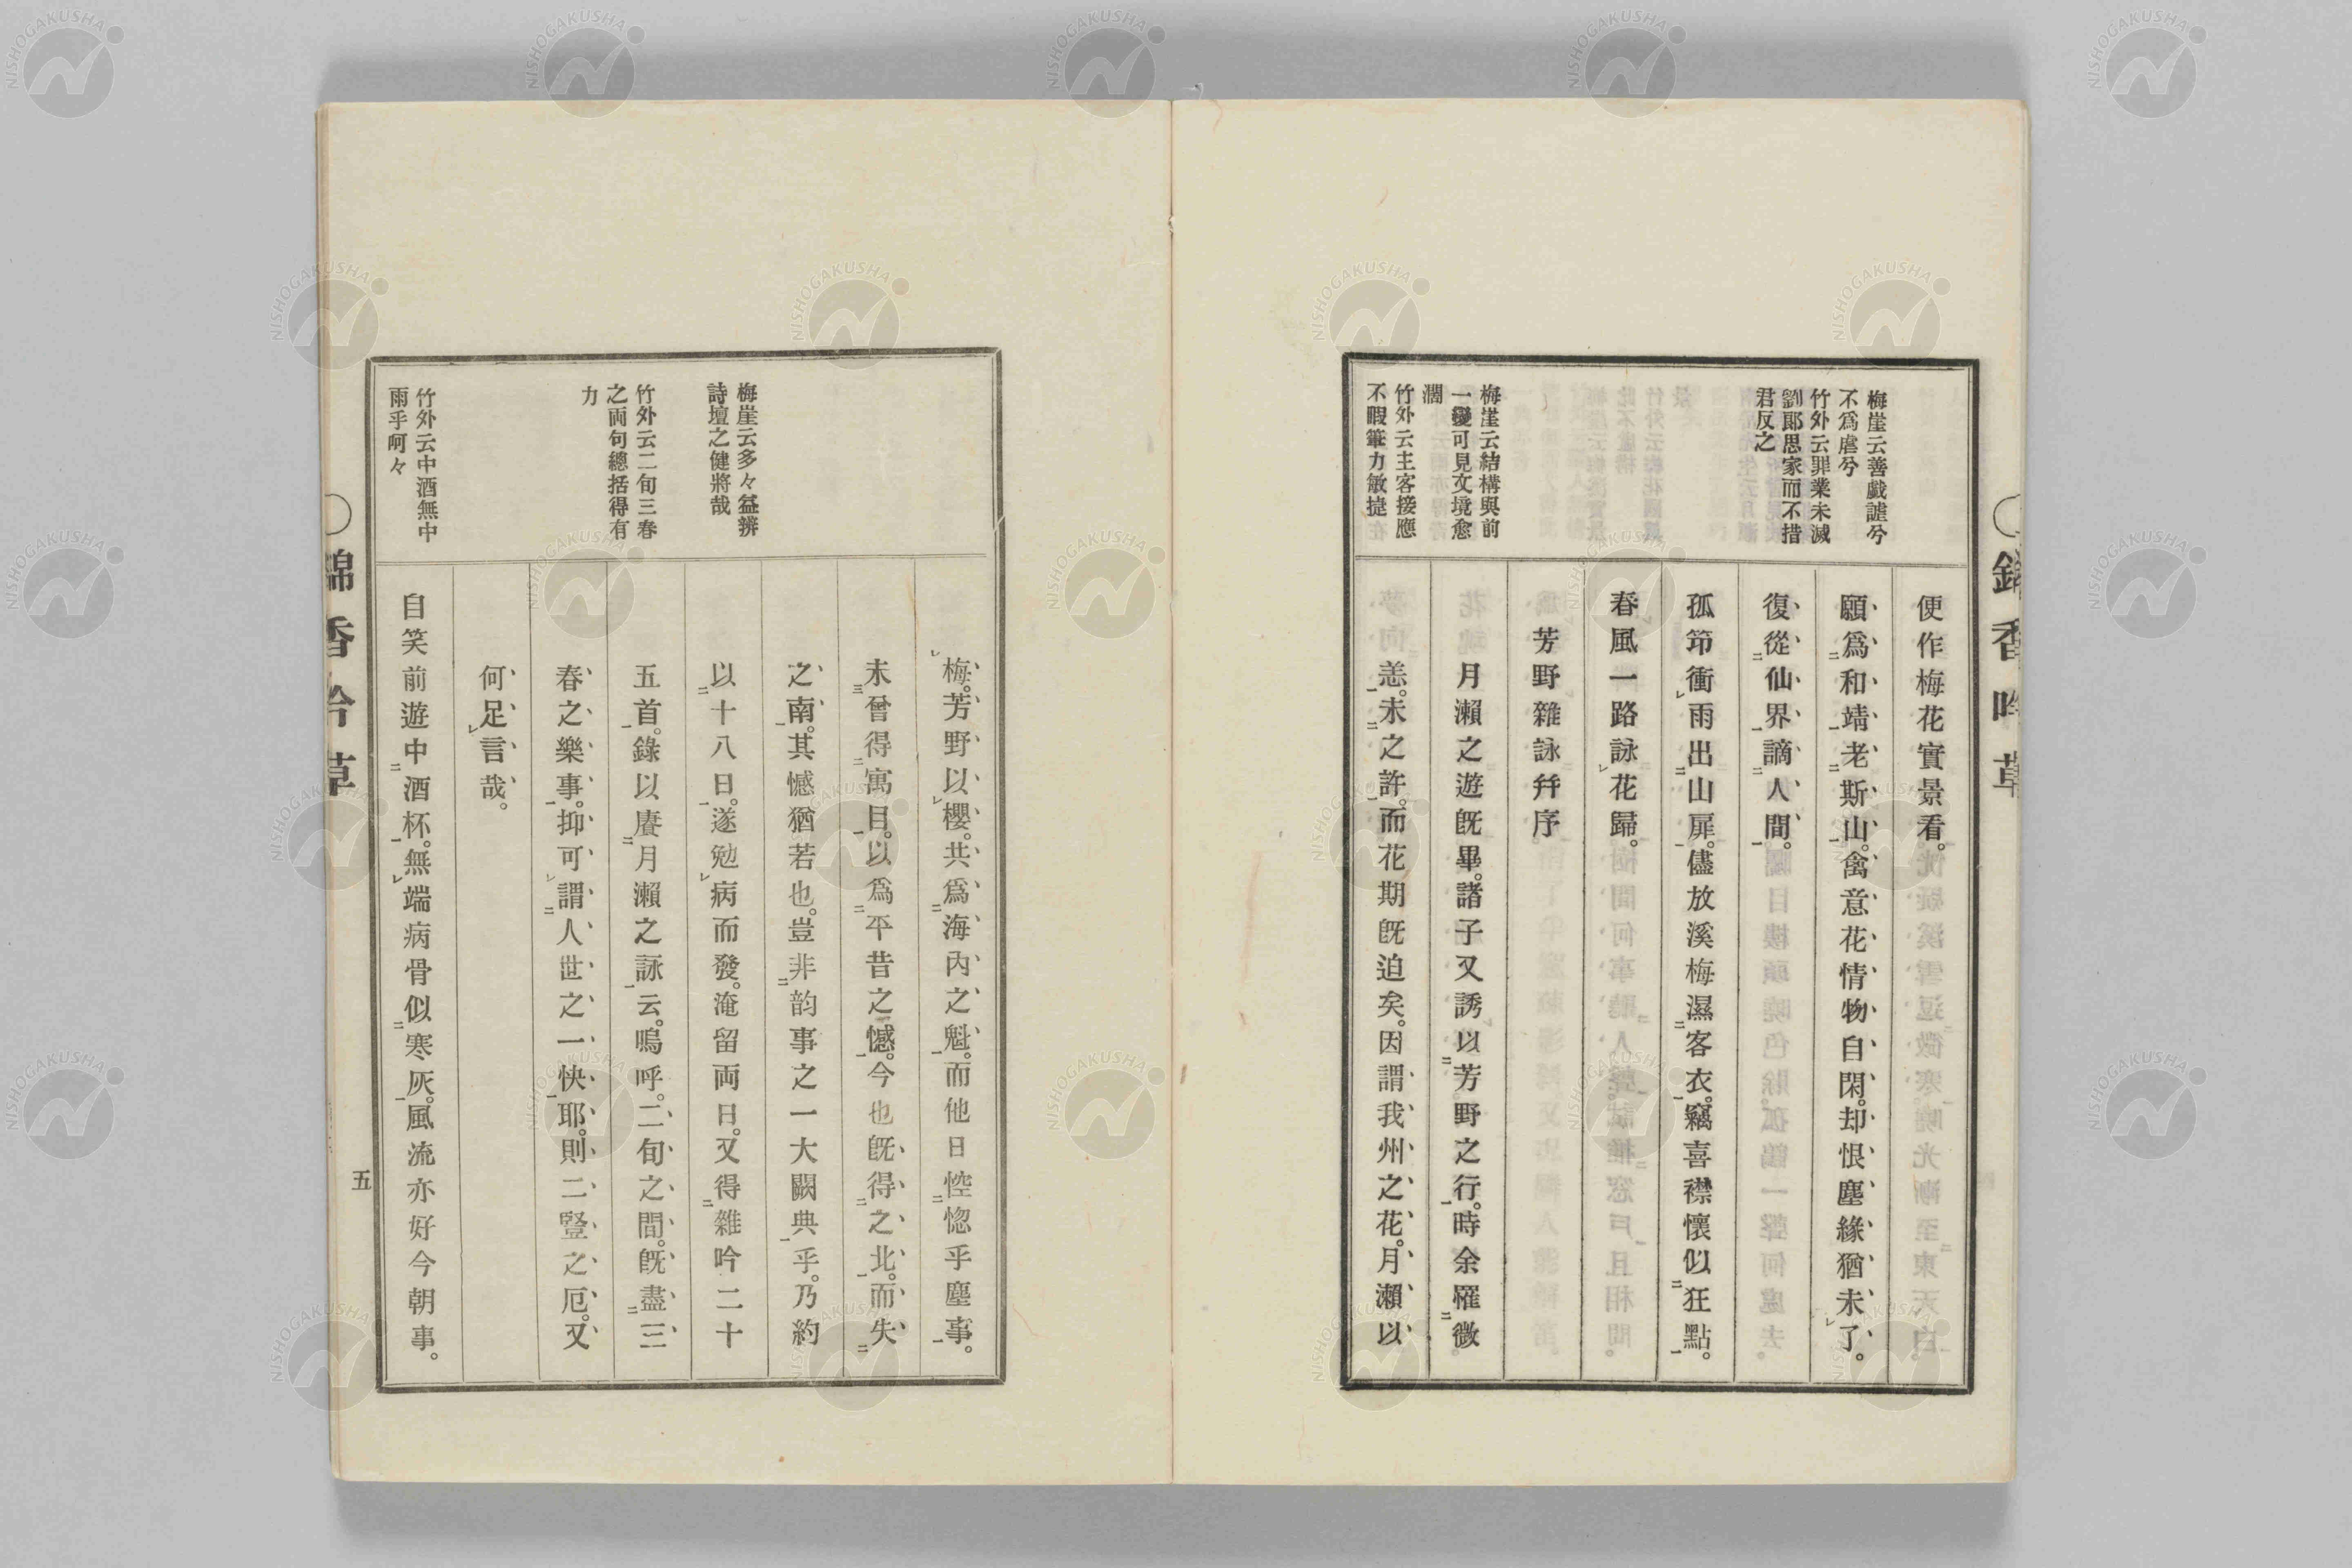 梅崖云善戯謔兮
不爲虐兮
竹外云罪業未滅
劉郞思家而不措
君反之
梅崖云結構與前
一變可見文境愈
濶
竹外云主客接應
不暇筆力敏捷
便作梅花實景看。
願爲和靖老斯山。禽意花情物自閑。却恨塵緣猶未了。
復從仙界謫人間。
孤筇衝雨出山扉。儘放溪梅濕客衣。竊喜襟懷似狂點。
春風一路詠花歸。
芳野雜詠幷序
月瀨之遊既畢。諸子又誘以芳野之行。時余罹微
恙。未之許。而花期既迫矣。因謂我州之花。月瀨以
梅崖云多々益辨
詩壇之健將哉
竹外云二旬三春
之両句總括得有
力
竹外云中酒無中
雨乎呵々
梅。芳野以櫻。共爲海內之魁。而他日悾惚乎塵事。
未曾得寓目。以爲平昔之憾。今也既得之北。而失
之南。其憾猶若也。豈非韵事之一大闕典乎。乃約
以十八日。遂勉病而發。淹留両日。又得雜吟二十
五首。錄以賡月瀨之詠云。嗚呼。二旬之間。既盡三
春之樂事。抑可謂人世之一快耶。則二豎之厄。又
何足言哉。
自笑前遊中酒杯。無端病骨似寒灰。風流亦好今朝事。
錦香吟草
五
NISHOGAKUSHA